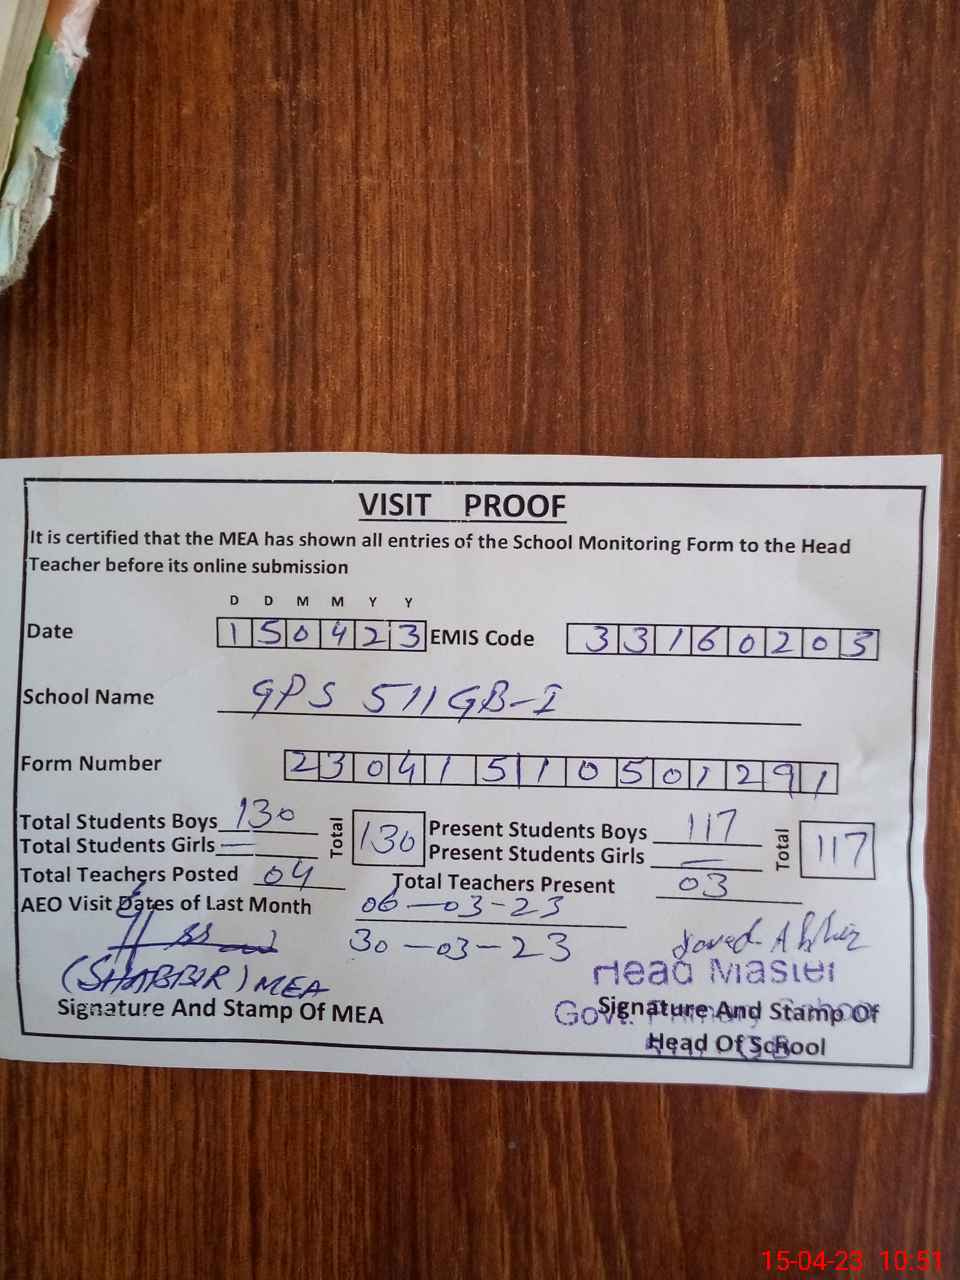 VISIT PROOF
It is certified that the MEA has shown all entries of the School Monitoring Form to the Head
Teacher before its online submission
D D M M Y Y
Date 150423 EMIS Code 33160203
School Name GPS 511 GB-I
Form Number 23041510501291
Total Students Boys 130 Total 130 Present Students Boys 117 Total 117
Total Students Girls — Present Students Girls —
Total Teachers Posted 04 Total Teachers Present 03
AEO Visit Dates of Last Month 06-03-23
30-03-23
(SHABBIR) MEA Head Master
Signature And Stamp Of MEA Signature And Stamp Of
Govt. Primary School
Head Of School
15-04-23 10:51